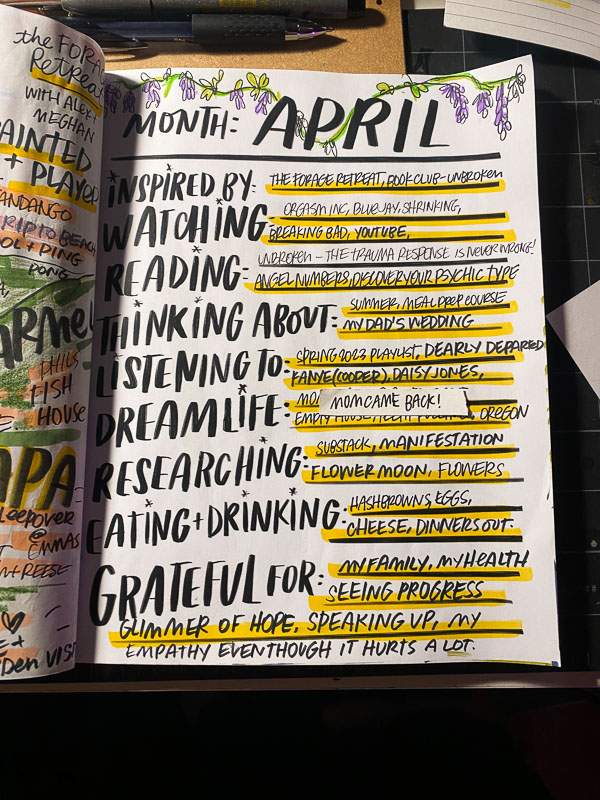 the FORAGE
Retreat
WITH ALEX +
MEGHAN
PAINTED
+ PLAYED
FANDANGO
POOL + PING
PONG
CARMEL
PHIL'S
FISH
HOUSE
PAPA
SLEEPOVER
@
EMMAS
REESE
VISIT
MONTH: APRIL
INSPIRED BY: THE FORAGE RETREAT, BOOK CLUB - UNBROKEN
WATCHING: ORGASM INC, BLUE JAY, SHRINKING,
BREAKING BAD, YOUTUBE,
READING: UNBROKEN - THE TRAUMA RESPONSE IS NEVER WRONG!
ANGEL NUMBERS, DISCOVER YOUR PSYCHIC TYPE
THINKING ABOUT: SUMMER, MEAL PREP COURSE
MY DAD'S WEDDING
LISTENING TO: SPRING 2023 PLAYLIST, DEARLY DEPARED
KANYE (COOPER), DAISY JONES,
DREAMLIFE: MOM CAME BACK!
OREGON
RESEARCHING: SUBSTACK, MANIFESTATION
FLOWER MOON, FLOWERS
EATING + DRINKING: HASHBROWNS, EGGS,
CHEESE, DINNERS OUT.
GRATEFUL FOR: MY FAMILY, MY HEALTH
SEEING PROGRESS
GLIMMER OF HOPE, SPEAKING UP, MY
EMPATHY EVENTHOUGH IT HURTS A LOT.